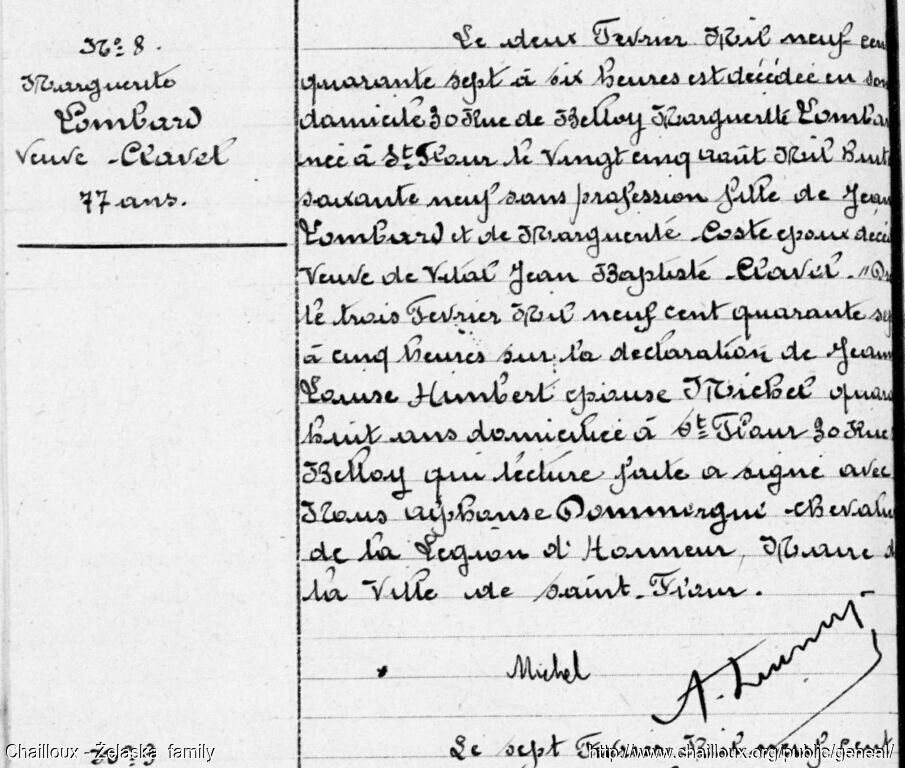 N° 8.
Marguerite
Lombard
Veuve Clavel
77 ans.
Le deux Fevrier Mil neuf cen
quarante sept à six heures est décédée en son
domicile 30 Rue de Belloy Marguerite Lombar
née à St Flour le Vingt cinq août Mil huit
soixante neuf sans profession fille de Jean
Lombard et de Marguerite Coste epoux décé
Veuve de Vital Jean Baptiste Clavel. "Dr
le trois Fevrier Mil neuf cent quarante se
à cinq heures sur la declaration de Jean
Louise Humbert epouse Michel quara
huit ans domiciliée à St Flour 30 Rue
Belloy qui lecture faite a signé avec
Nous Alphonse Dommergue chevalie
de la Légion d'Honneur, Maire d
la Ville de Saint-Flour.
Michel
N° 9
Le sept Fevrier Mil neuf cent
Chailloux - Zelaska family
http://www.chailloux.org/public/geneal/